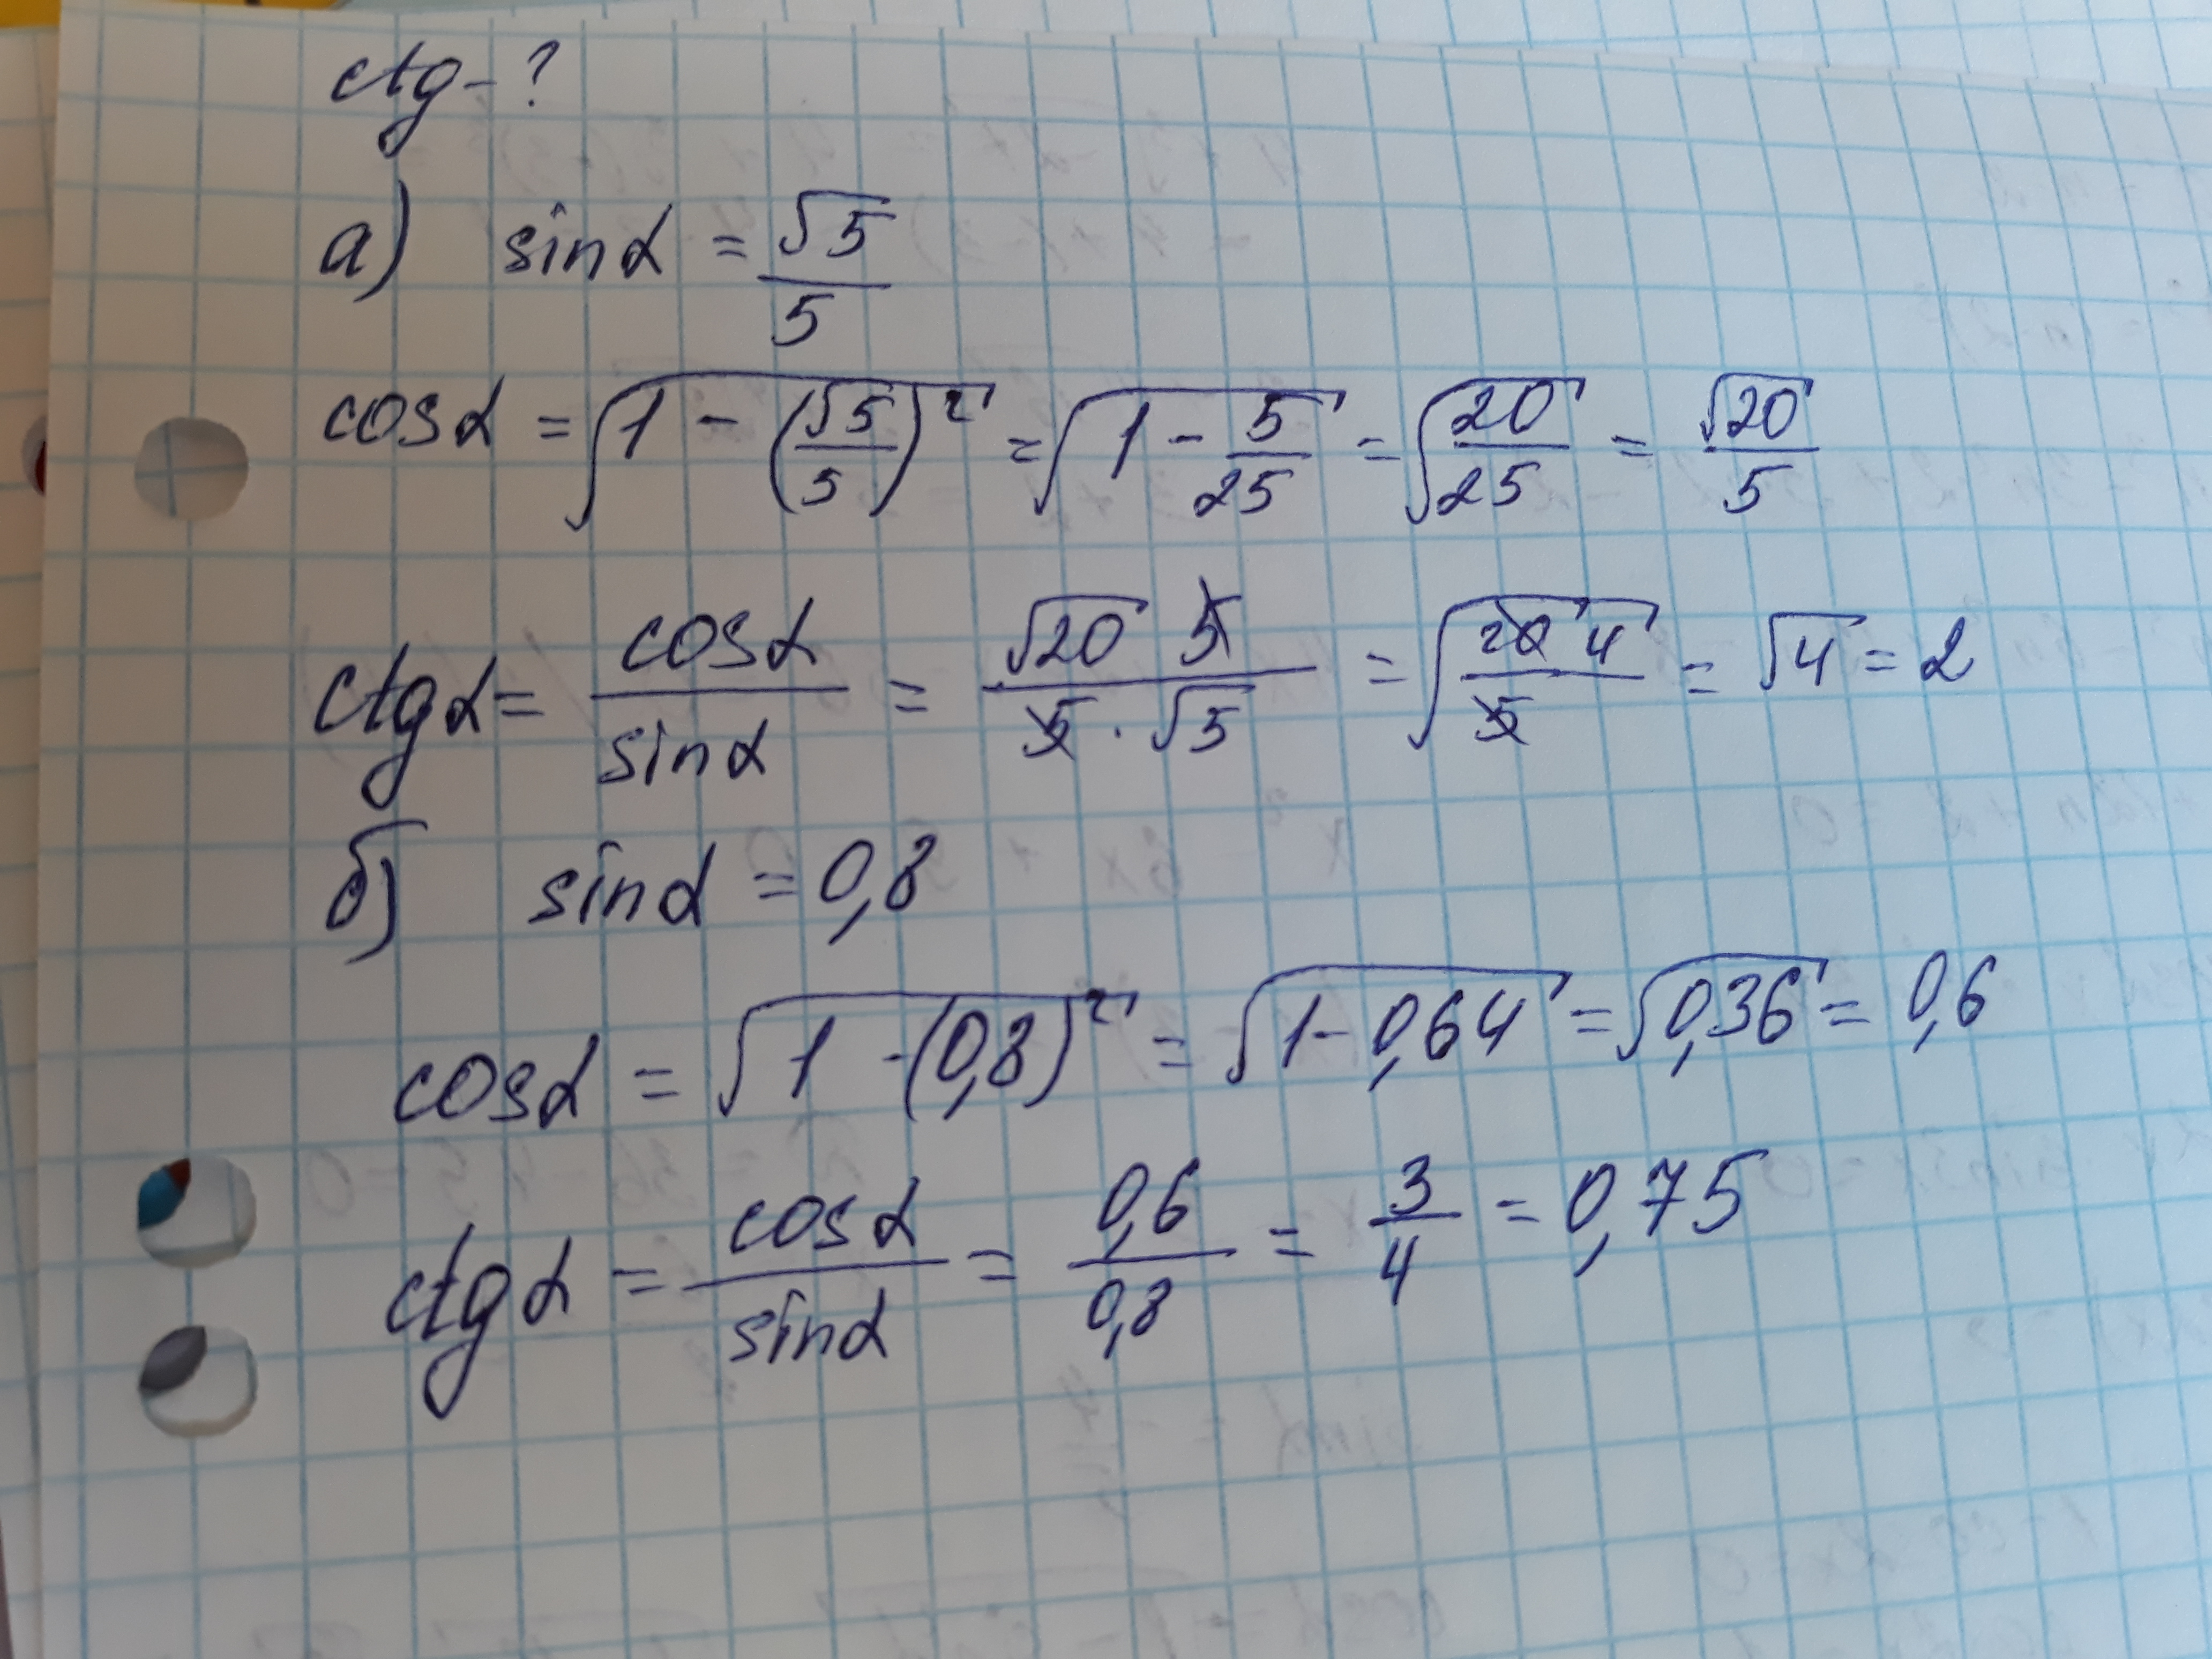 ctg - ?
а) sinα = √5/5
cosα = √(1 - (√5/5)²) = √(1 - 5/25) = √(20/25) = √20/5
ctgα = cosα/sinα = (√20 5)/(5 · √5) = √(20 4/5) = √4 = 2
б) sinα = 0,8
cosα = √(1 - (0,8)²) = √(1 - 0,64) = √0,36 = 0,6
ctgα = cosα/sinα = 0,6/0,8 = 3/4 = 0,75